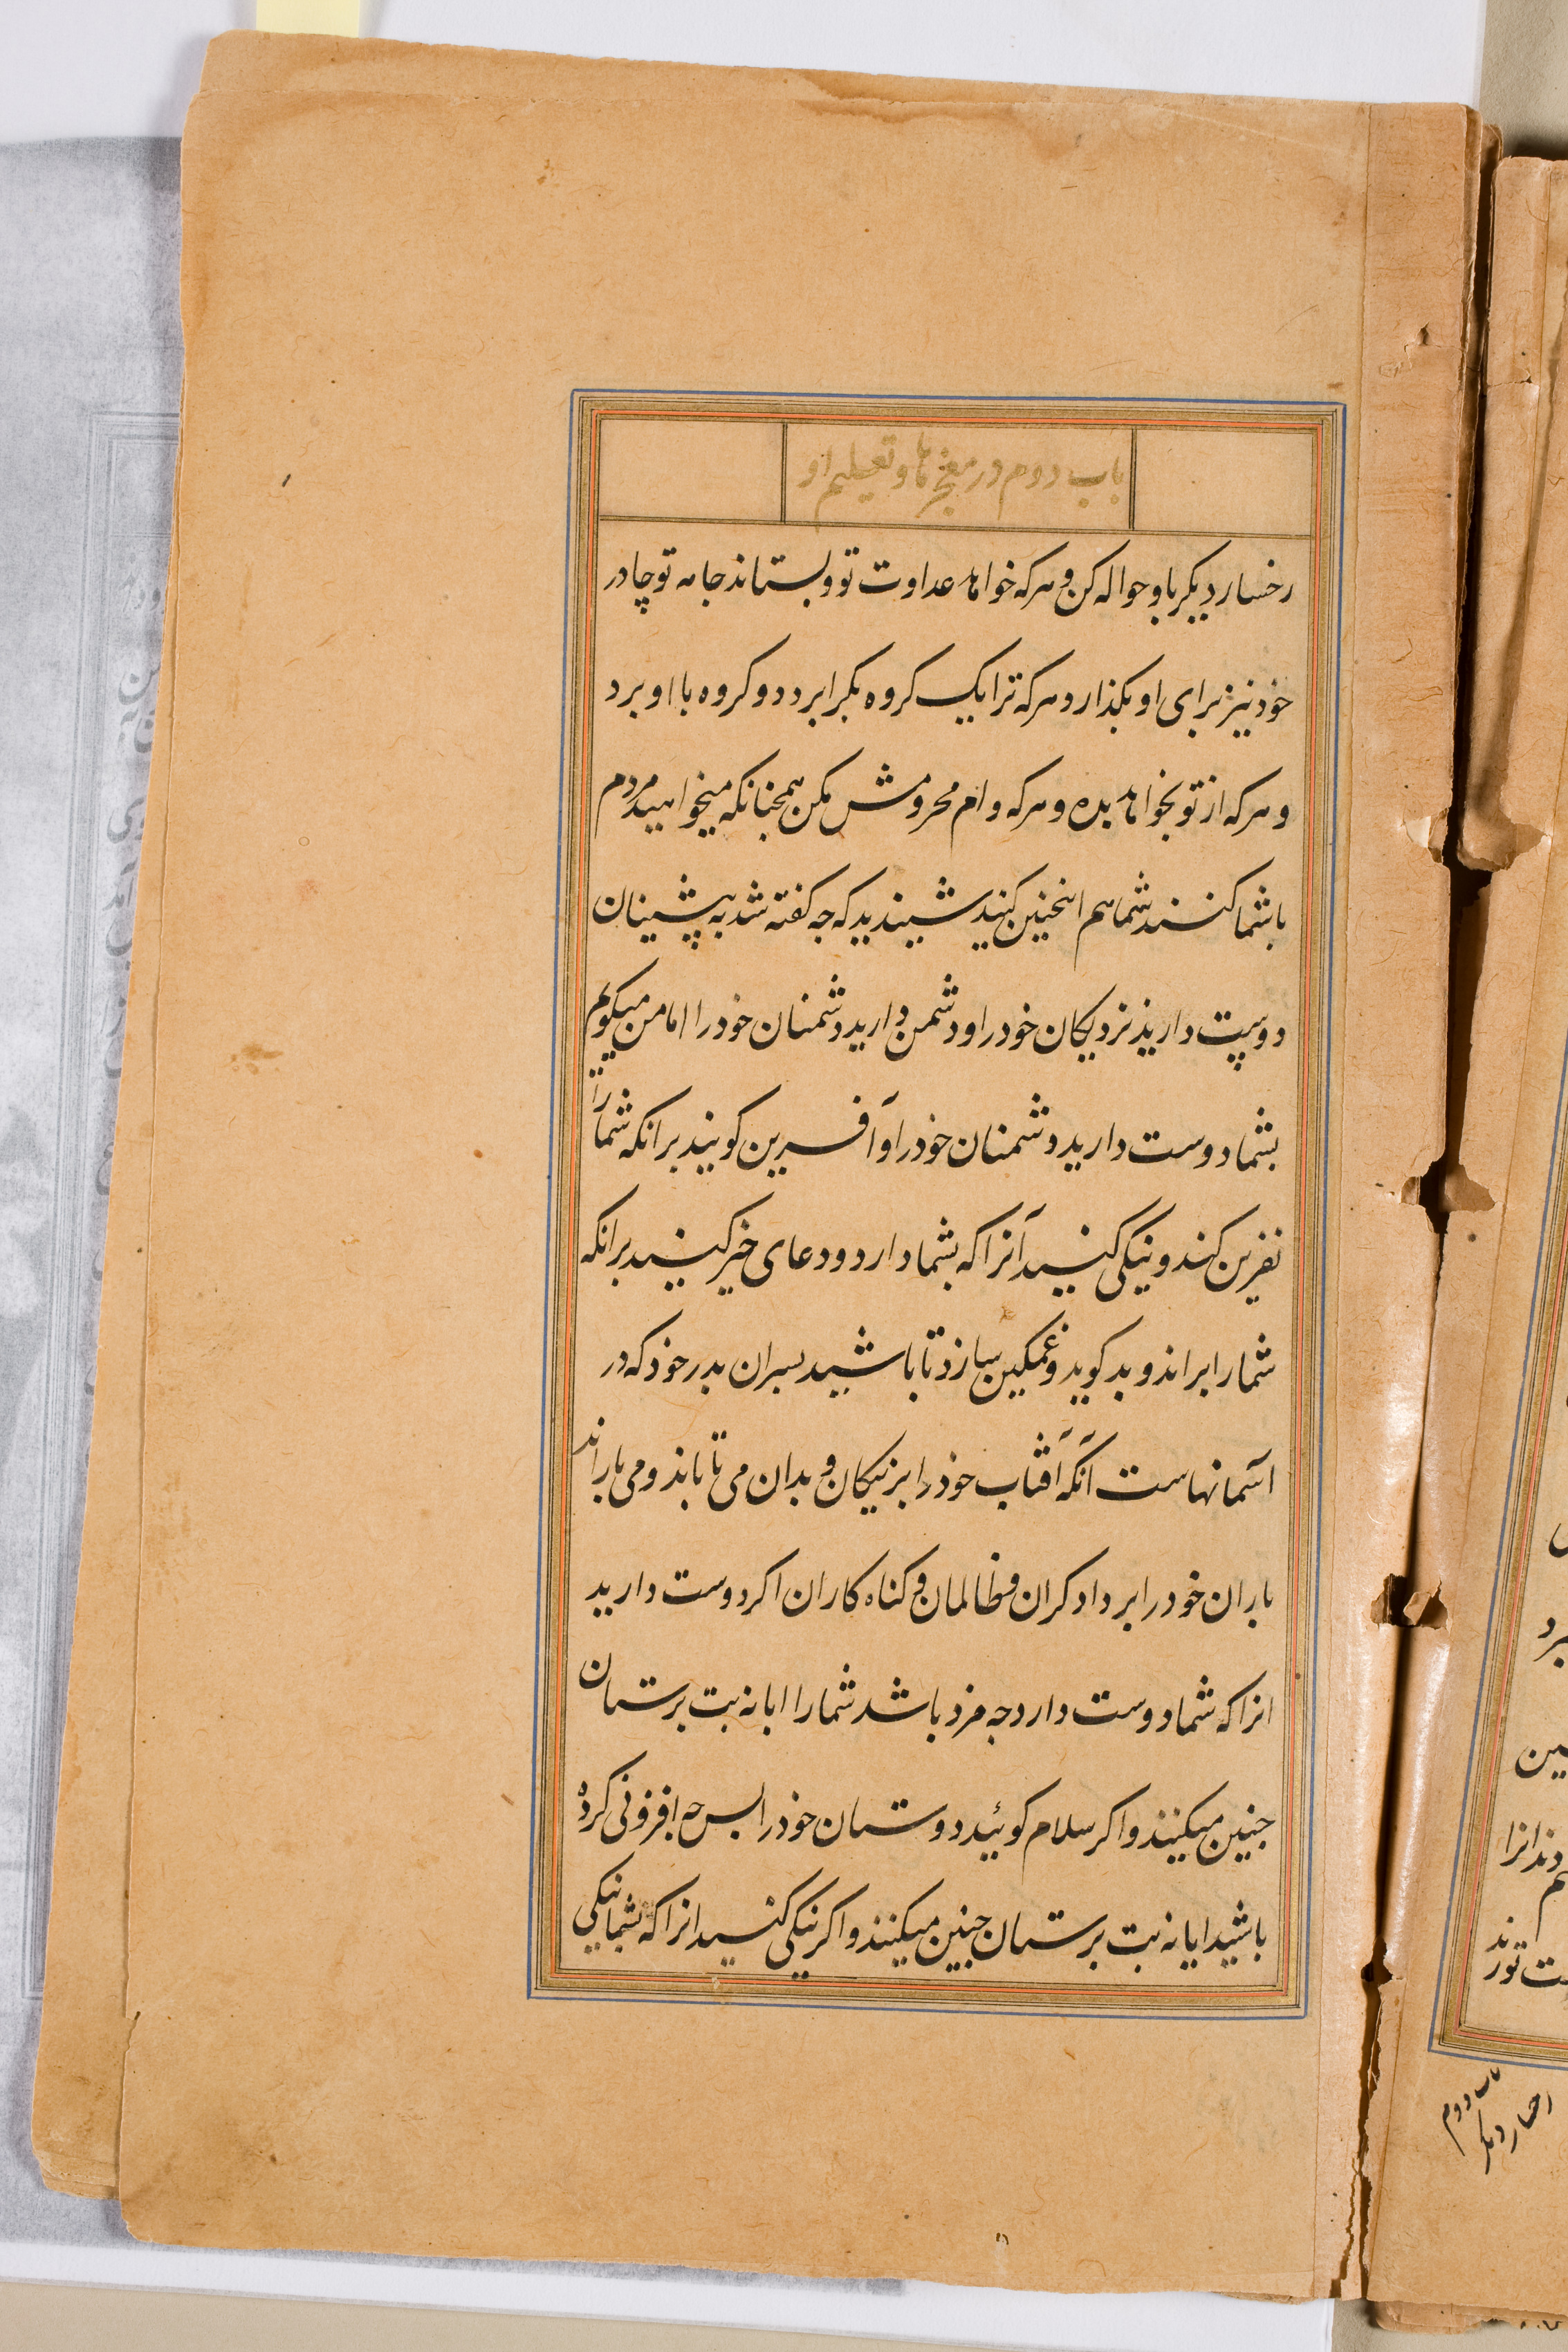 باب دوم در معجزها و تعلیم او
رخسار دیکر باو حواله کن و هر که خواهد عداوت تو و بستاند جامه تو چادر
خود نیز برای او بکذار و هر که ترا یک کروه بکرا برد دو کروه با او برد
و هر که از تو بخواهد بده و هر که وام محرومش مکن همچنانکه میخواهید مردم
با شما کنند شما هم انچنین کنید شنیدید که چه کفته شد به پیشینان
دوست دارید نزدیکان خود را و دشمن دارید دشمنان خود را اما من میکویم
بشما دوست دارید دشمنان خود را و آفرین کویید بر انکه شما را
نفرین کند و نیکی کنید آنرا که بشما دارد و دعای خیر کنید بر انکه
شما را براند و بد کوید و غمکین سازد تا باشید پسران پدر خود که در
آسمانهاست آنکه آفتاب خود را بر نیکان و بدان می تاباند و می باراند
باران خود را بر دادکران و ظالمان و کناه کاران اکر دوست دارید
انرا که شما دوست دارد چه مزد باشد شما را ایا نه بت پرستان
چنین میکنند و اکر سلام کوئید دوستان خود را پس چه افزونی کرده
باشید ایا نه بت پرستان چنین میکنند و اکر نیکی کنید انرا که بشما نیکی
باب دوم
رخسار دیکر